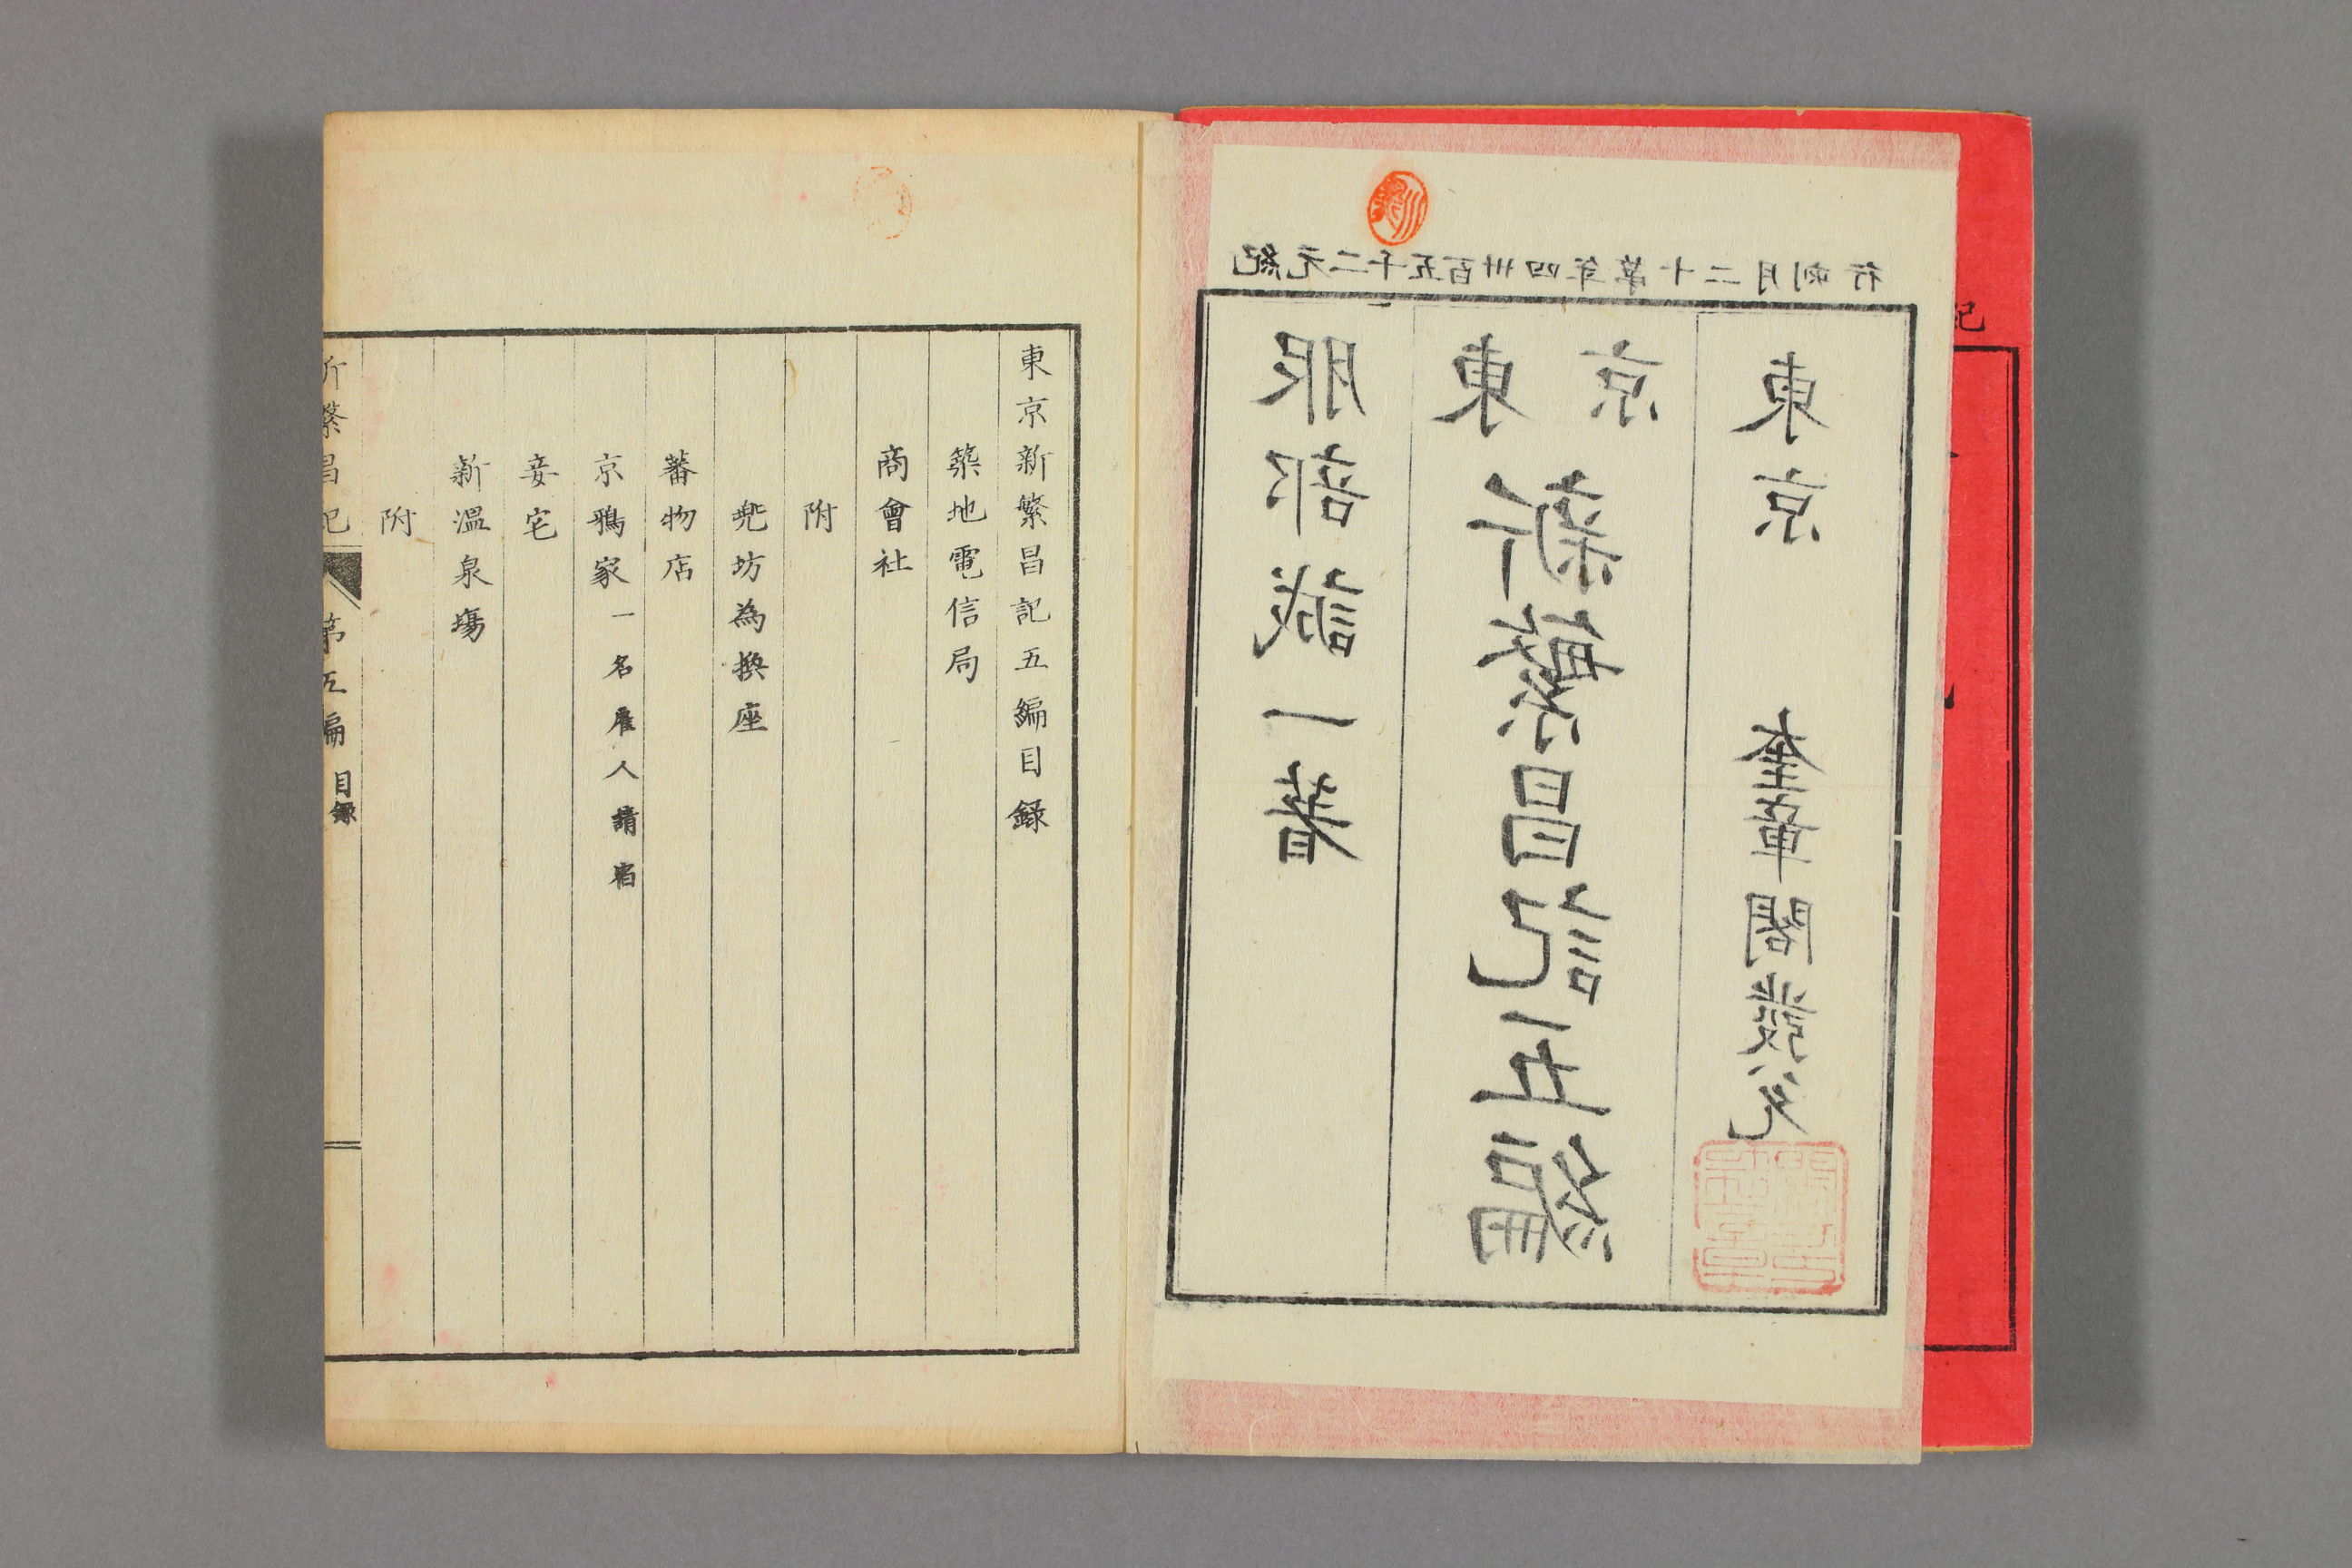 紀元二千五百卅四年第十二月刻行
服部誠一著
東京新繁昌記五編
東京 奎章閣發兌
東京新繁昌記五編目録
築地電信局
商會社
附
兜坊為換座
蕃物店
京鴉家一名雇人請宿
妾宅
新温泉場
附
新繁昌記 第五編 目録